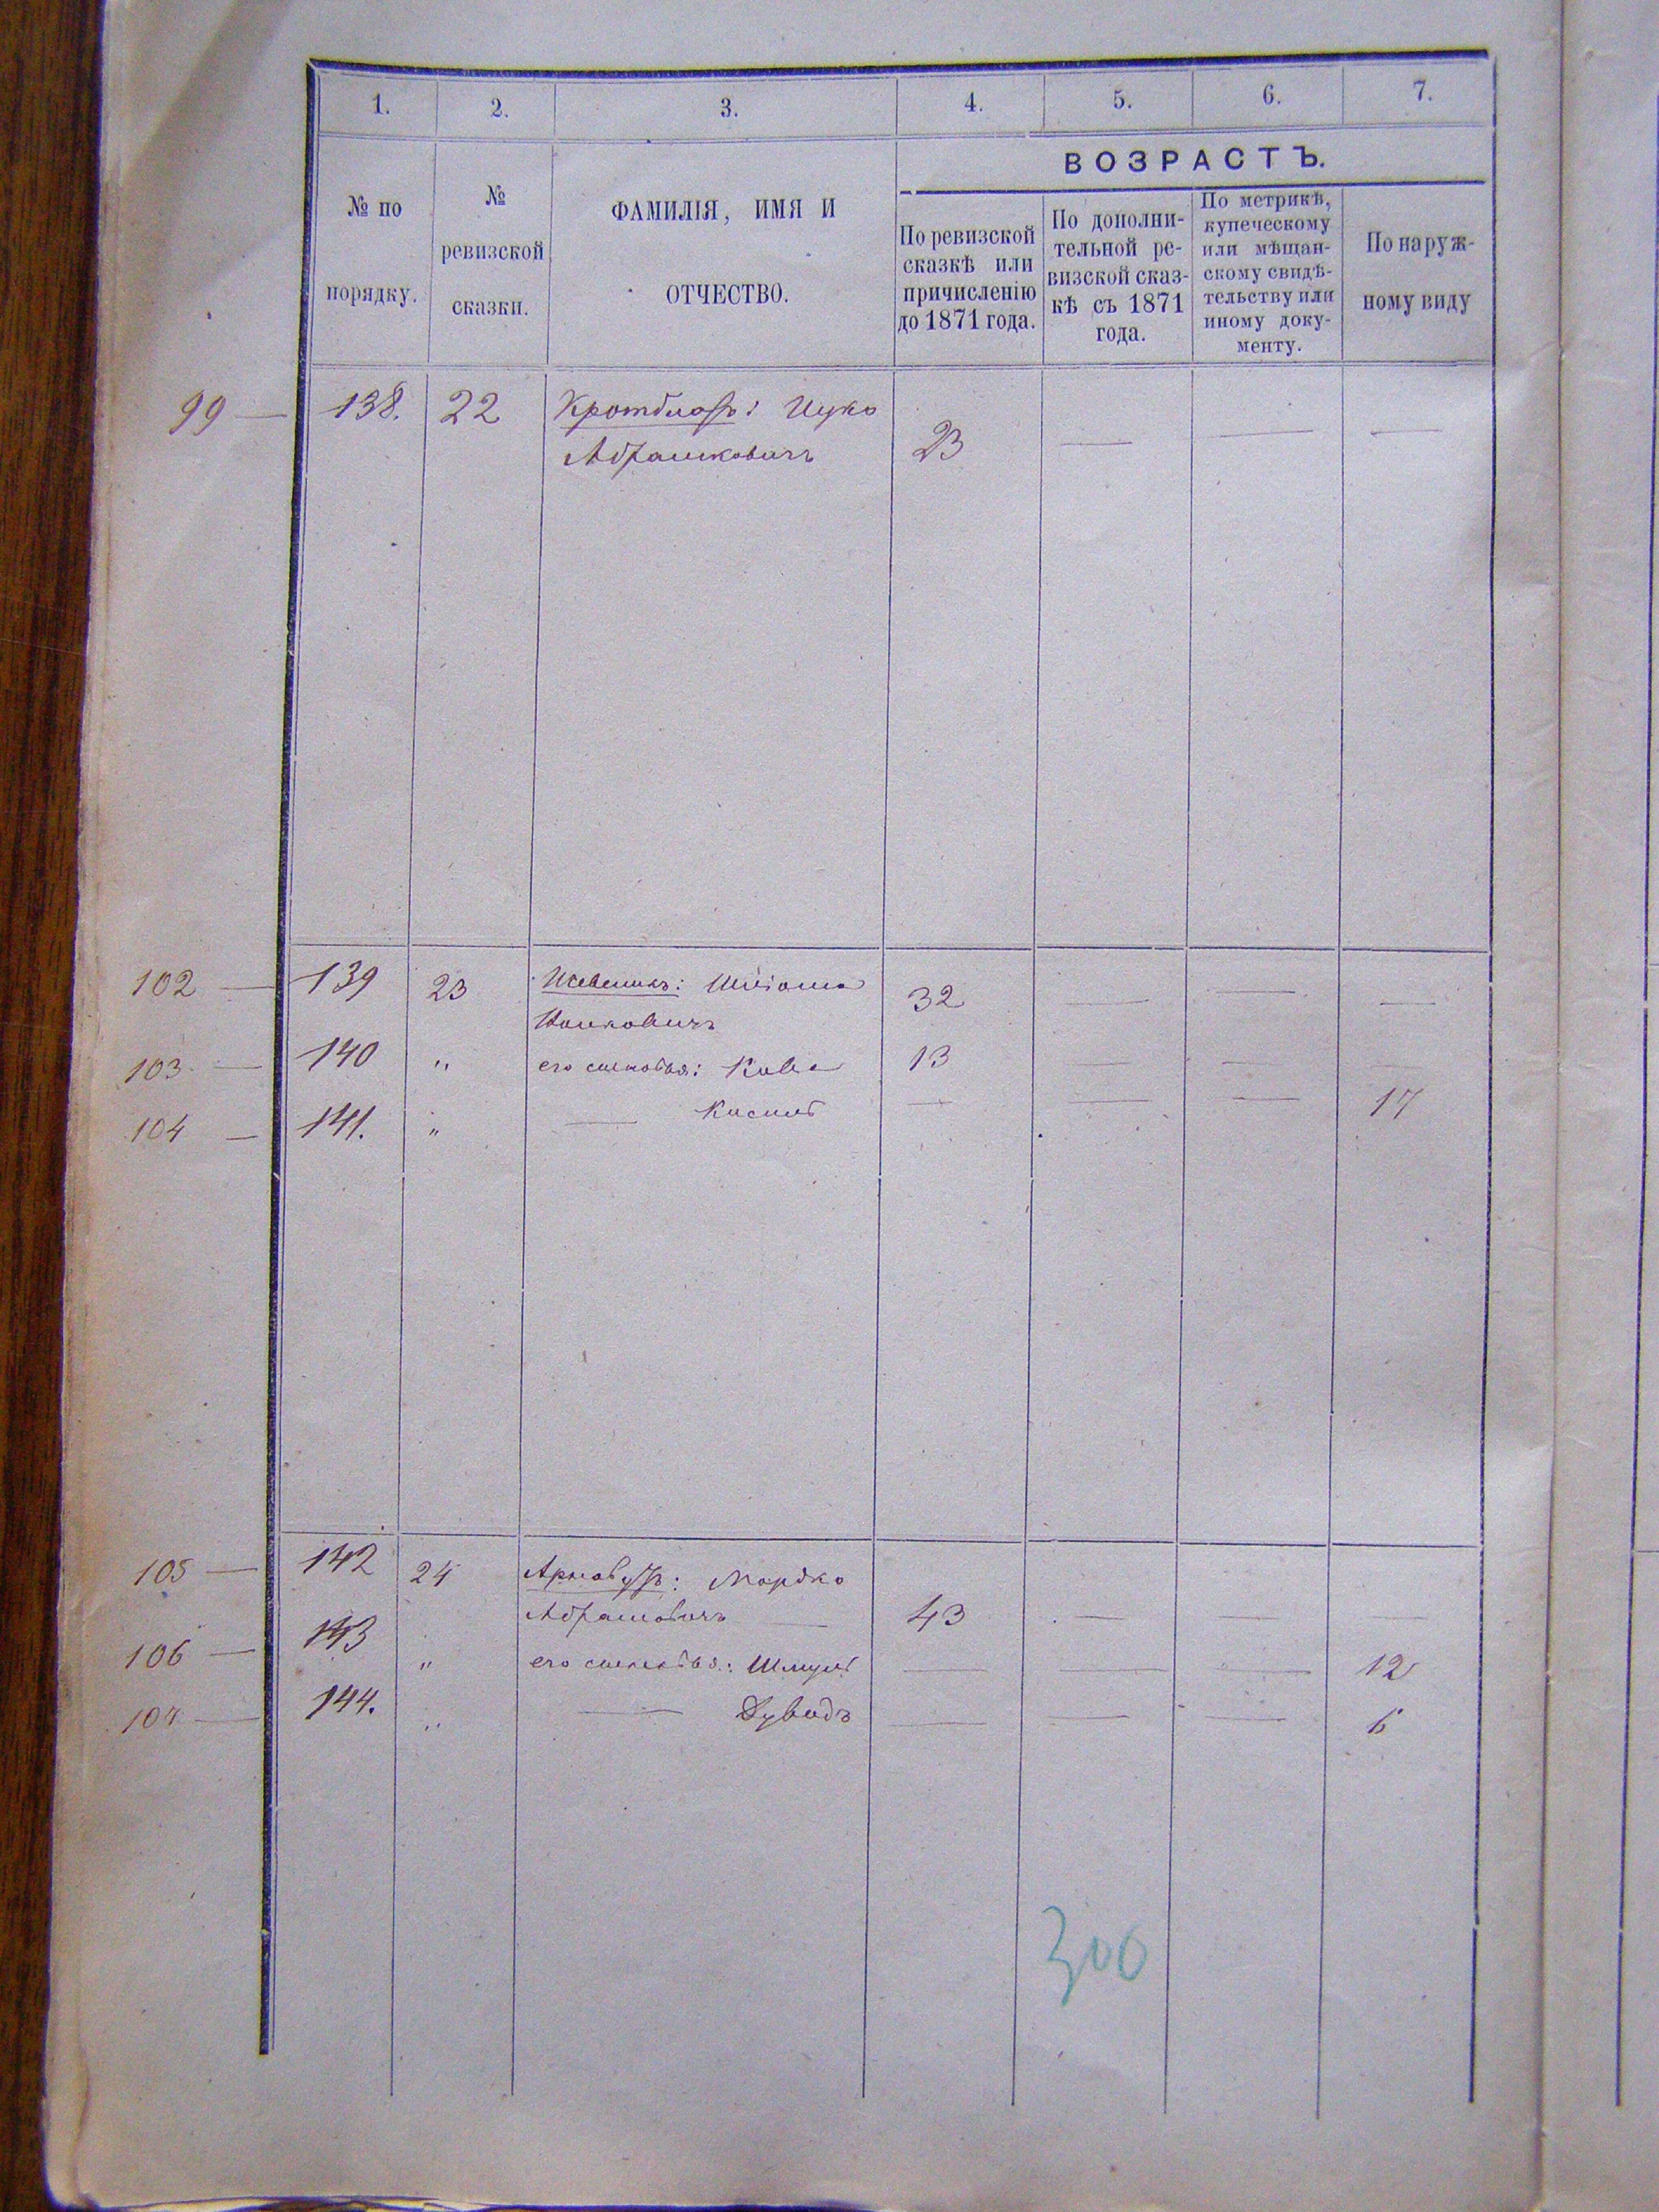 1. 2. 3. 4. 5. 6. 7.
ВОЗРАСТЪ.
№ по
порядку.
№
ревизской
сказки.
ФАМИЛІЯ, ИМЯ И
ОТЧЕСТВО.
По ревизской
сказкѣ или
причисленію
до 1871 года.
По дополни-
тельной ре-
визской сказ-
кѣ съ 1871
года.
По метрикѣ,
купеческому
или мѣщан-
скому свидѣ-
тельству или
иному доку-
менту.
По наруж-
ному виду
99 — 138. 22 Ицко
Абрашковичъ 23 — — —
102 — 139 23 32 — — —
103 — 140 " его сыновья: 13 — —
104 — 141. " — Кисиль — — — 17
105 — 142 24 Мордко
Абрамовичъ — 43 — — —
106 — 143 " его сыновья: Шмуль — — — 12
107 — 144. " — Дувидъ — — — 6
300